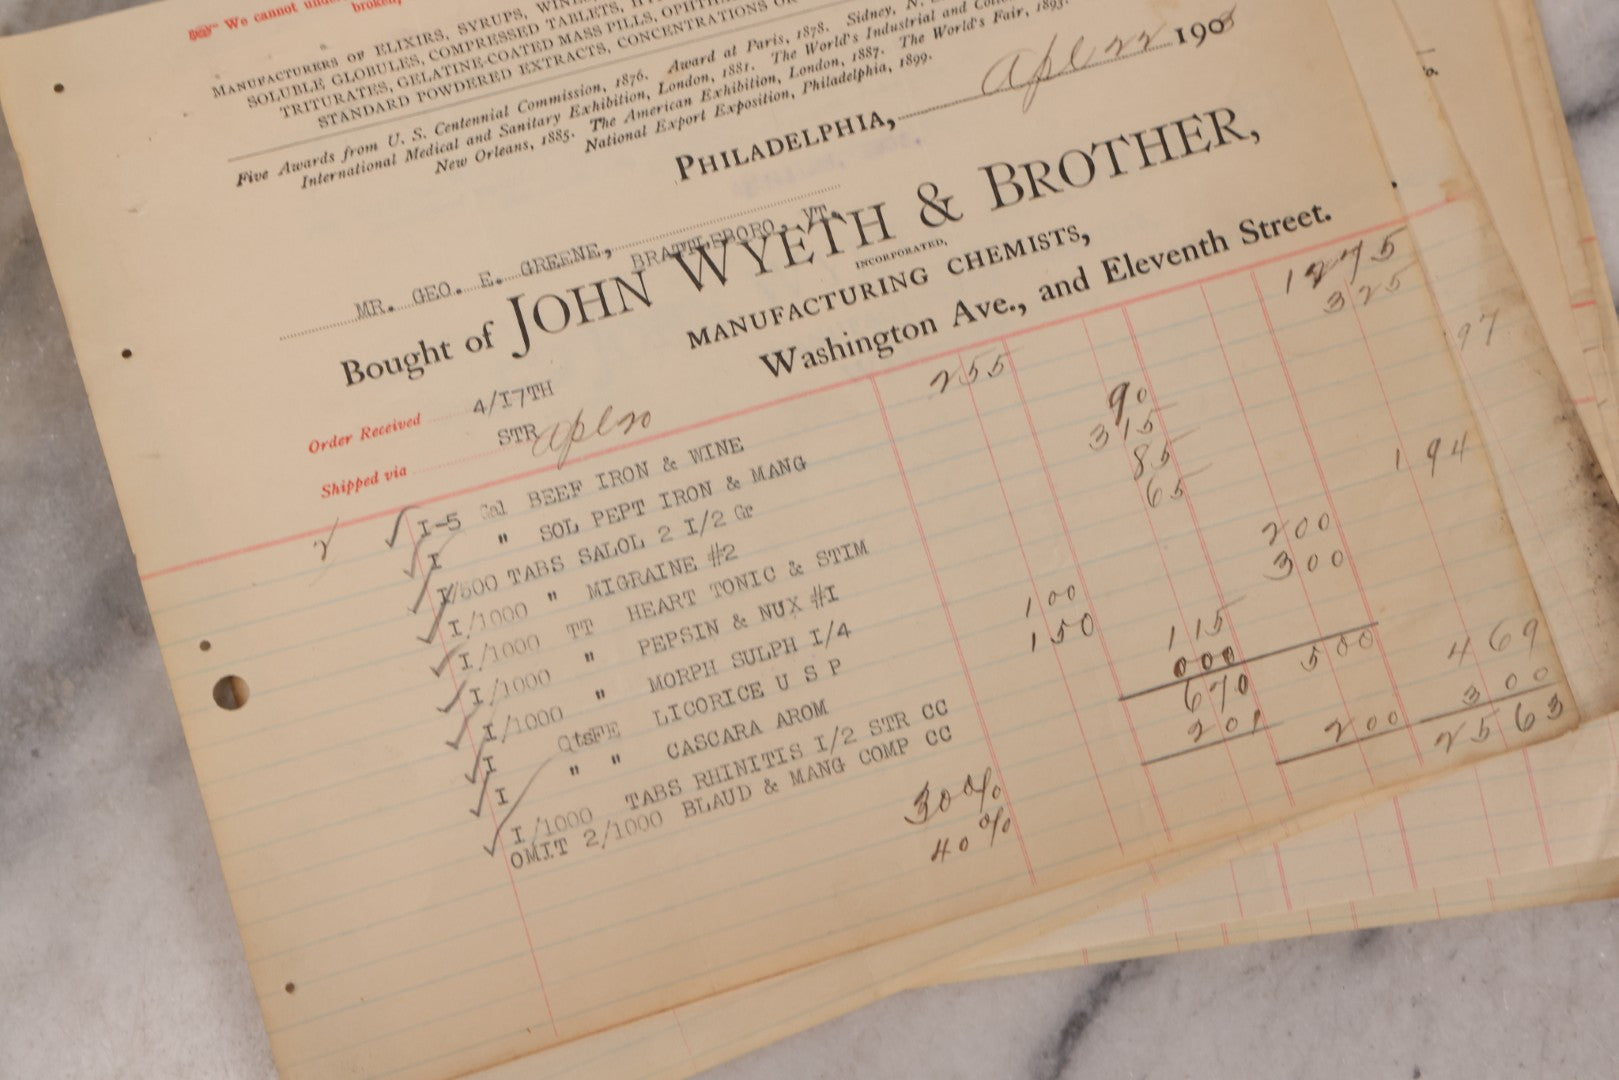 We cannot
broken,
MANUFACTURERS OF ELIXIRS, SYRUPS,
SOLUBLE GLOBULES, COMPRESSED TABLETS,
TRITURATES, GELATINE-COATED MASS PILLS,
STANDARD POWDERED EXTRACTS, CONCENTRATIONS
Five Awards from U. S. Centennial Commission, 1876. Award at Paris, 1878. Sidney, N.
International Medical and Sanitary Exhibition, London, 1881. The World's Industrial and
New Orleans, 1885. The American Exhibition, London, 1887. The World's Fair, 1893.
National Export Exposition, Philadelphia, 1899.
PHILADELPHIA, Apl 22 190
MR. GEO. E. GREENE, BRATTLEBORO, VT.
Bought of JOHN WYETH & BROTHER,
INCORPORATED,
MANUFACTURING CHEMISTS,
Washington Ave., and Eleventh Street.
Order Received 4/I7TH
Shipped via STR Apl 20
I-5 Gal BEEF IRON & WINE 255 1275
I " SOL PEPT IRON & MANG 325
I/500 TABS SALOL 2 I/2 Gr 97
I/1000 " MIGRAINE #2 90
I/1000 TT HEART TONIC & STIM 315
I/1000 " PEPSIN & NUX #I 85
I/1000 " MORPH SULPH I/4 65
I QtsFE LICORICE U S P 194
I " " CASCARA AROM 200
I/1000 TABS RHINITIS I/2 STR CC 100 300
OMIT 2/1000 BLAUD & MANG COMP CC 150 115
000
30% 670 500 469
40% 201 200 300
2563